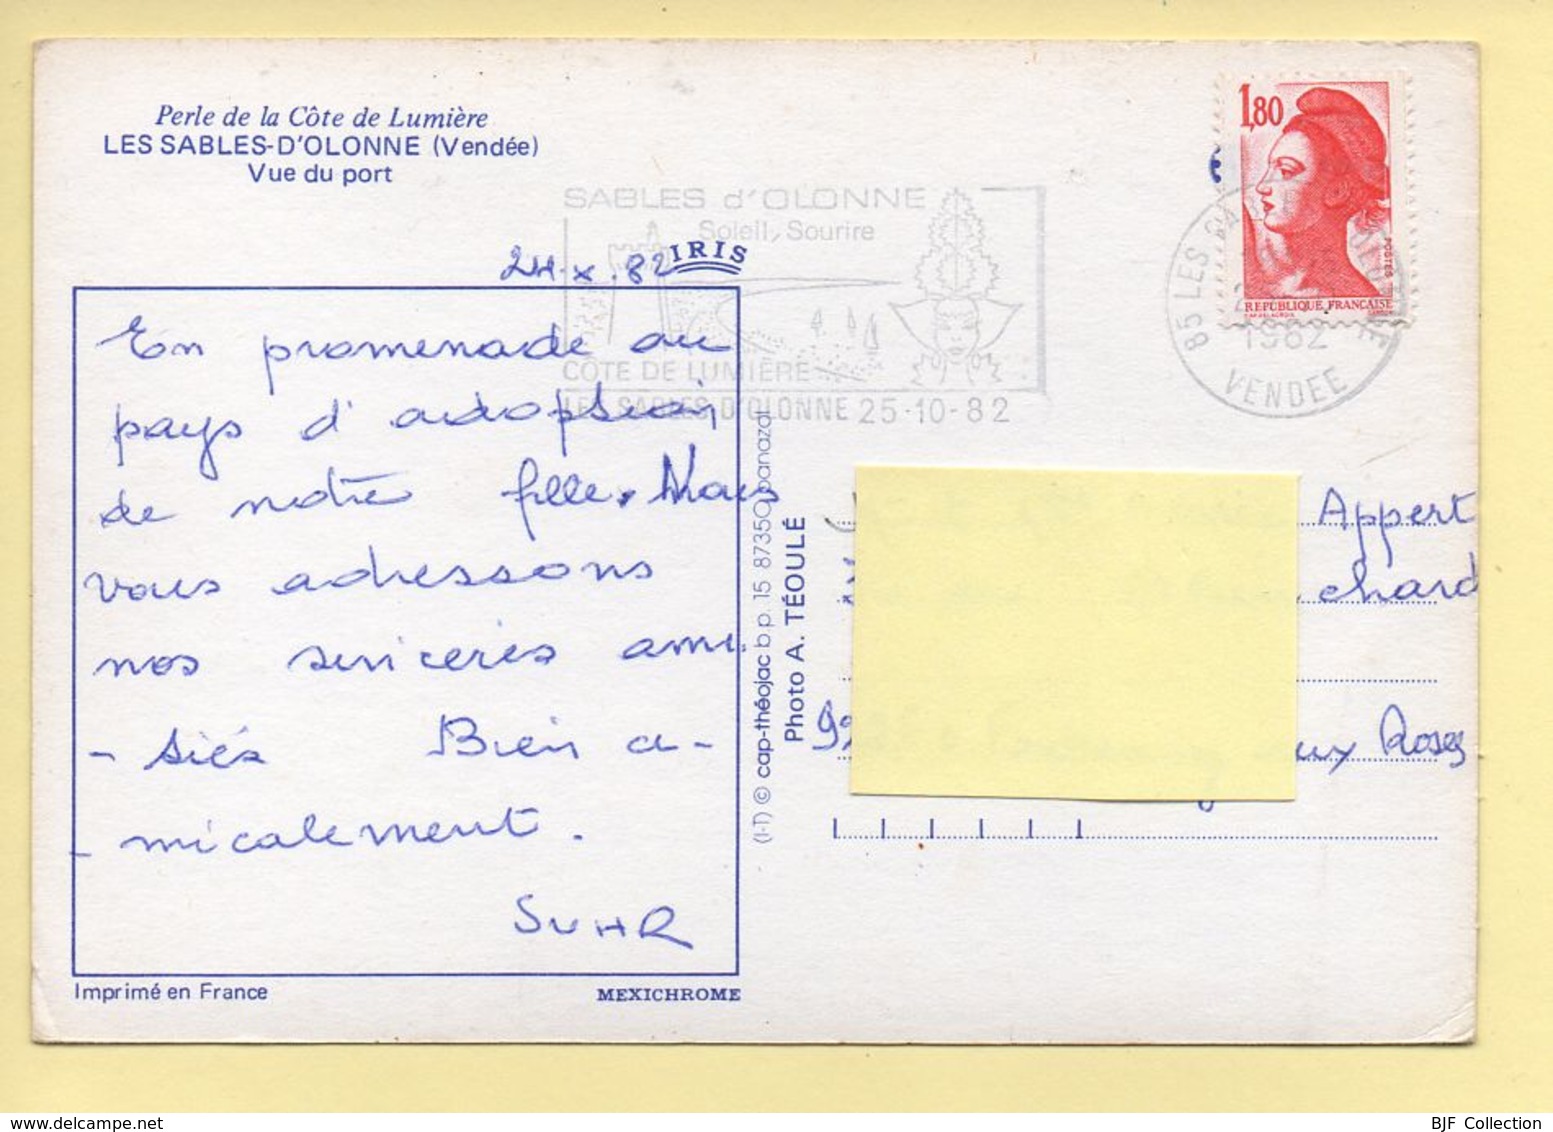 Perle de la Côte de Lumière
LES SABLES-D'OLONNE (Vendée)
Vue du port
SABLES d'OLONNE
Soleil, Sourire
CÔTE DE LUMIÈRE
LES SABLES D'OLONNE 25-10-82
1,80
POSTES
REPUBLIQUE FRANÇAISE
85 LES
1982
VENDEE
24.x.82
IRIS
En promenade au
pays d'adoption
de notre fille. Nous
vous adressons
nos sincères ami
- tiés Bien a-
- micalement.
SUHR
Imprimé en France
MEXICHROME
(I-T) © cap-théojac b p. 15 87350 panazol
Photo A. TÉOULÉ
Appert
chard
92
aux Roses
BJF Collection